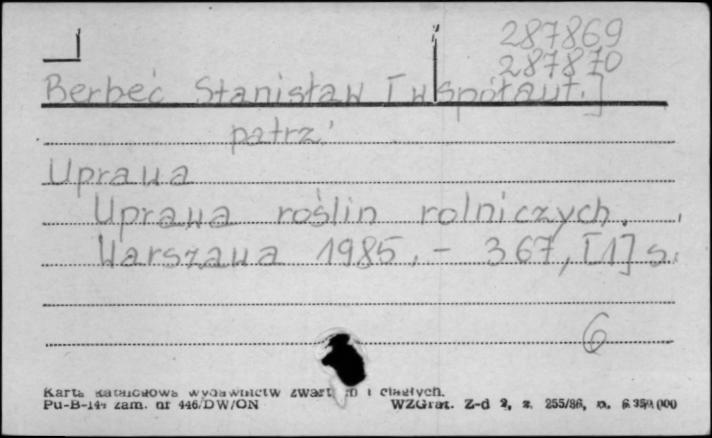 287869
287870
Berbeć Stanisław [współaut.]
patrz:
Uprawa
Uprawa roślin rolniczych.
Warszawa 1985. - 367, [1] s.
6
Karta katalogowa wydawnictw zwartych i ciągłych.
Pu-B-144 zam. nr 446/DW/ON WZGraf. Z-d 2, z. 255/86, n. 6 350 000